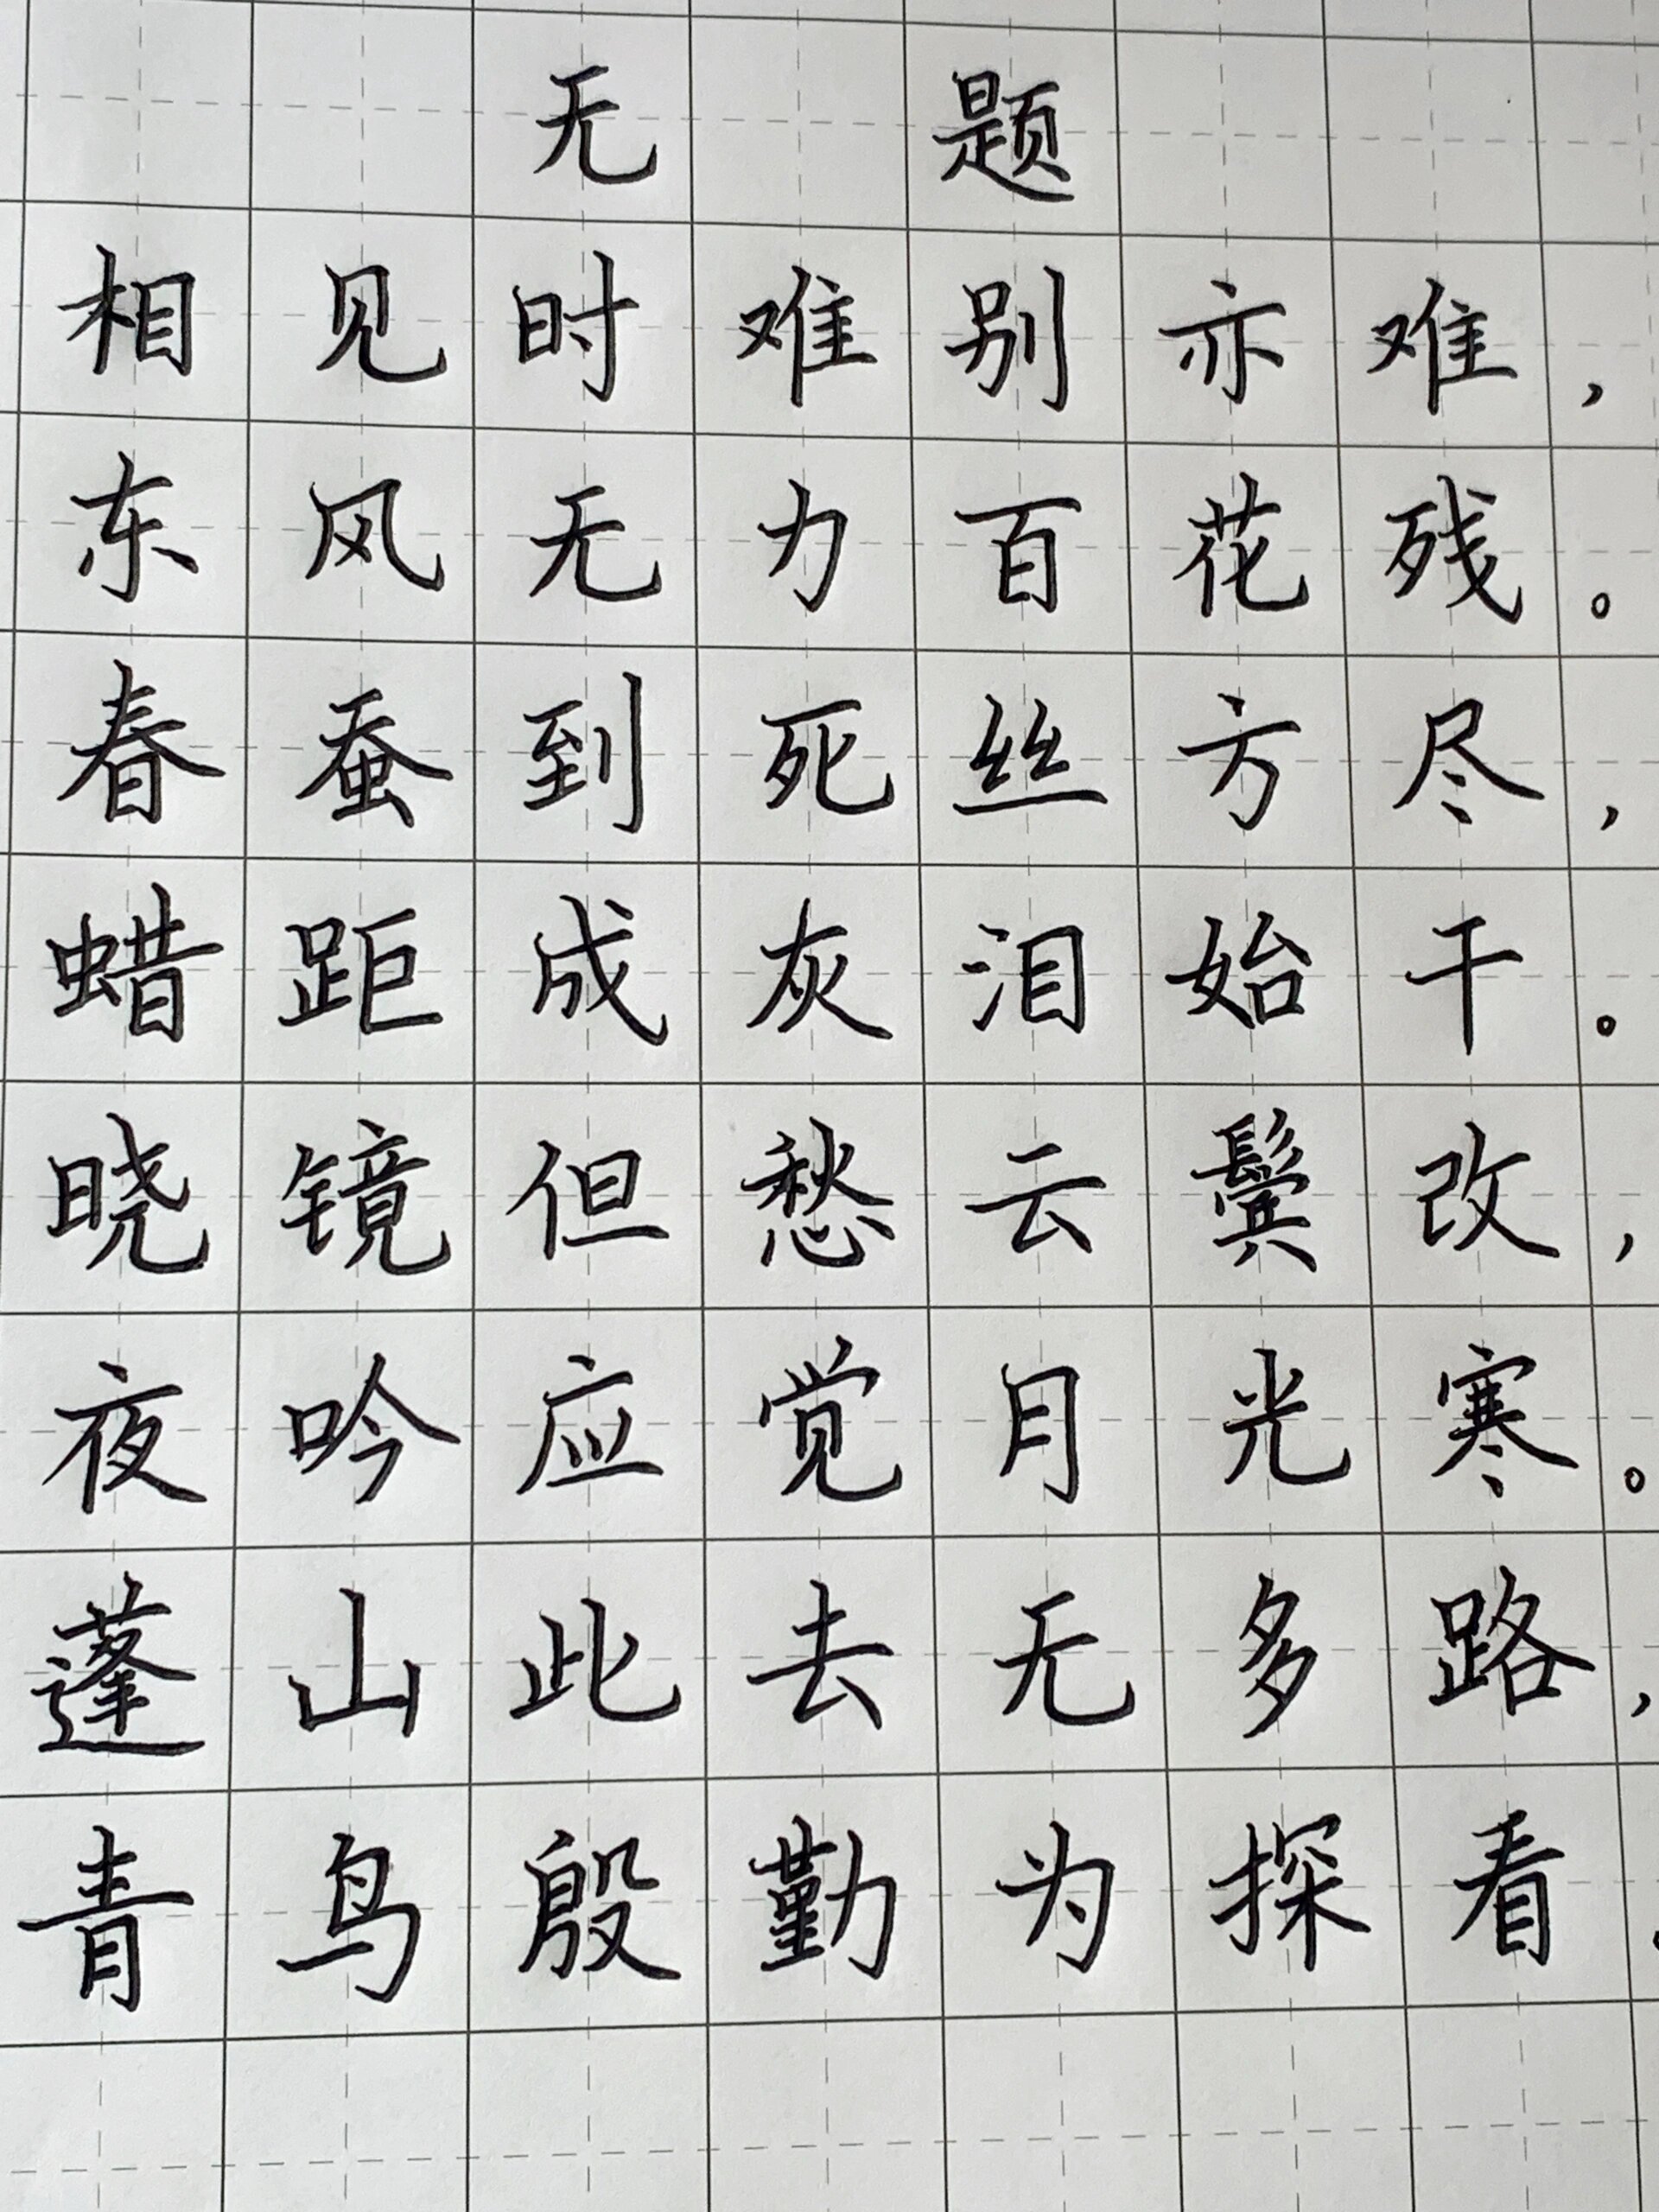 无题
相见时难别亦难，
东风无力百花残。
春蚕到死丝方尽，
蜡距成灰泪始干。
晓镜但愁云鬓改，
夜吟应觉月光寒。
蓬山此去无多路，
青鸟殷勤为探看